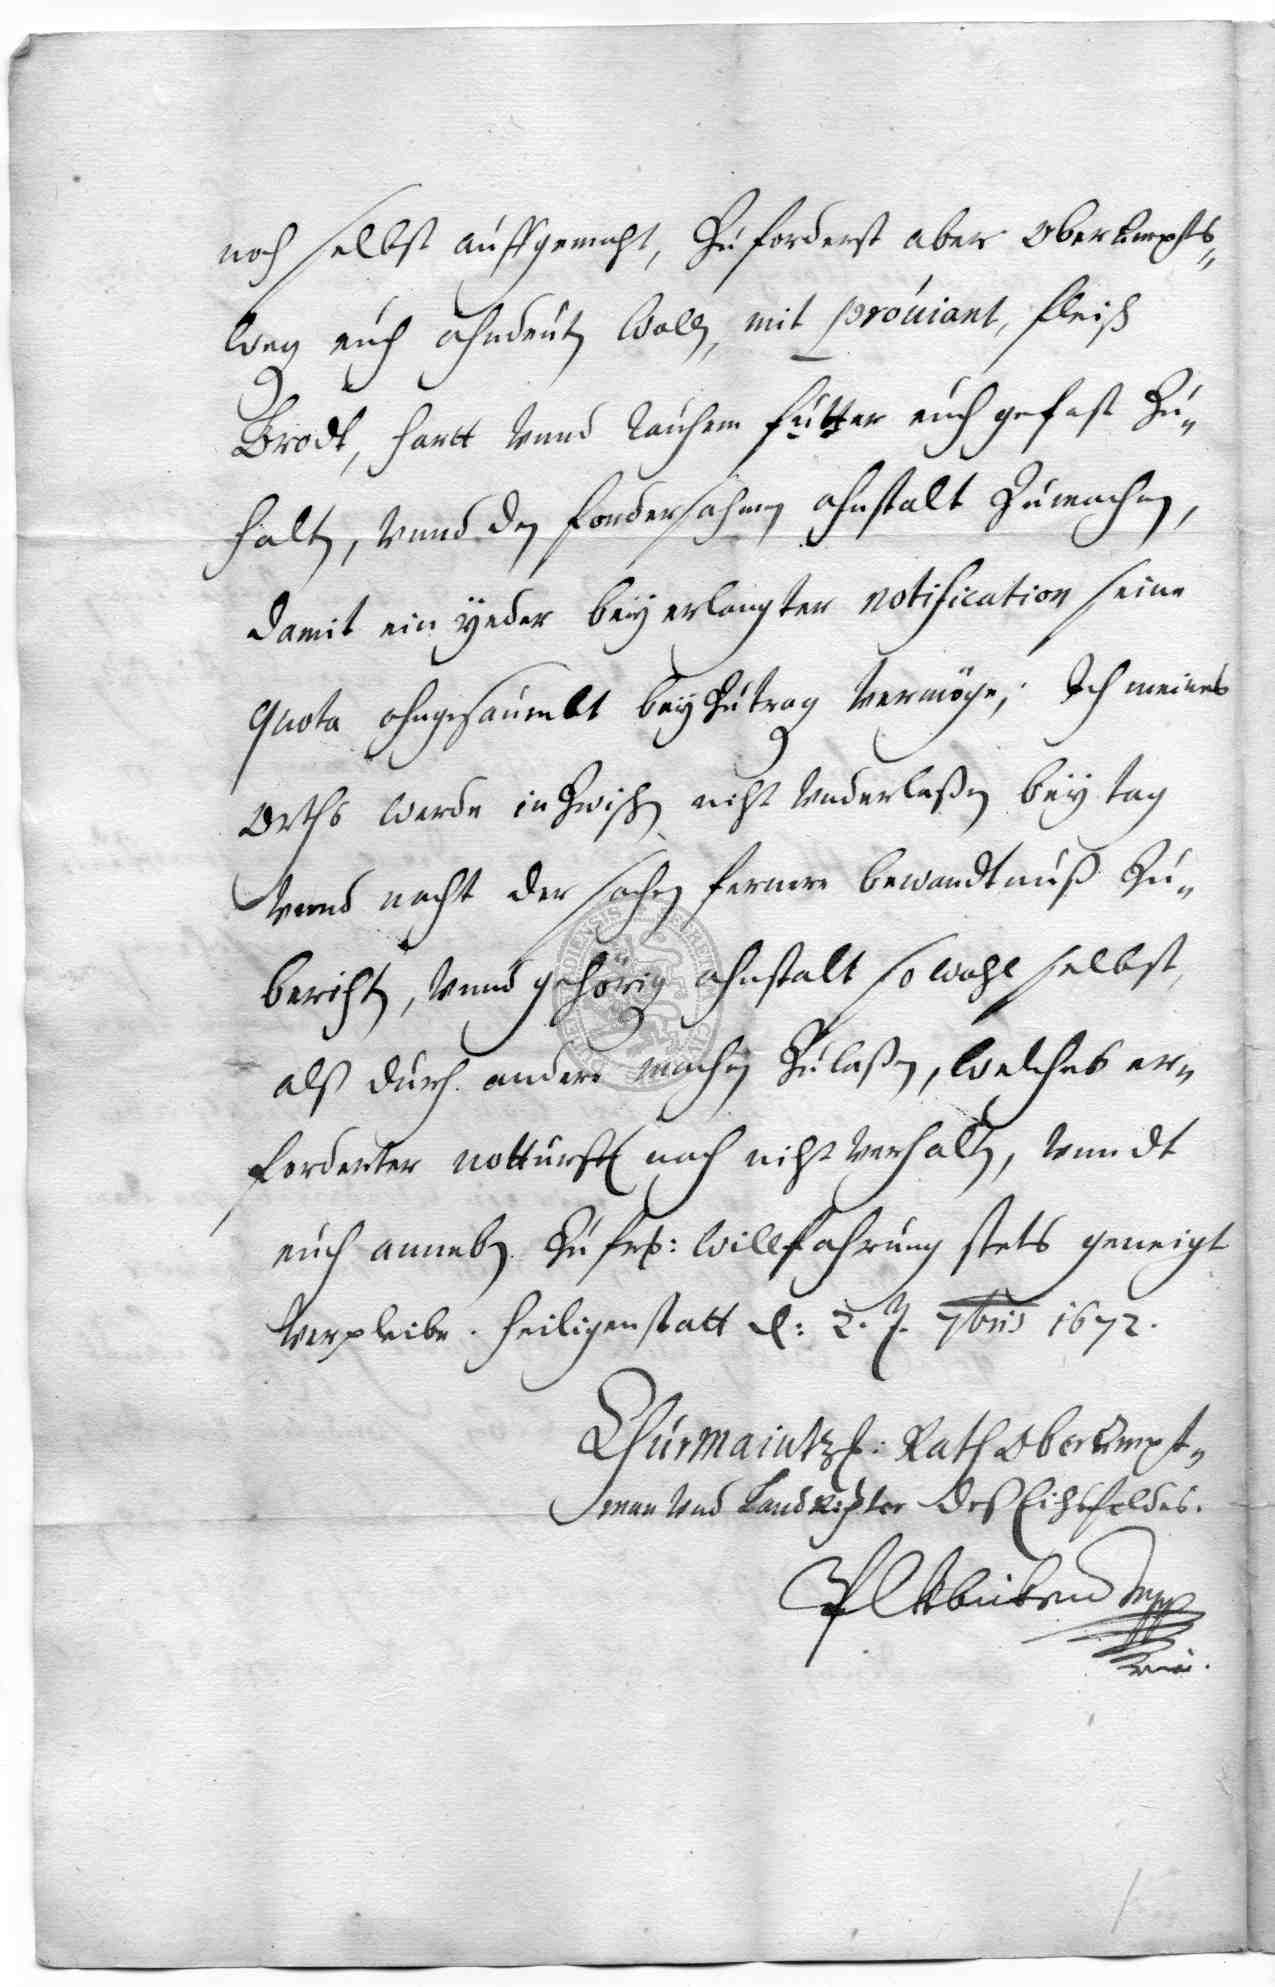 noch selbst auffgemacht, Zuforderst aber Oberambts-
weg euch ahndeuten wollen, mit proviant, fleisch
Brodt, hartt vnnd Rauhem futter euch gefast Zu-
halten, vnnd den fordersahmen ahnstalt Zumachen,
damit ein yeder bey erlangter notification seine
quota ohngesaumbt beyZutragen vermöge; Ich meines
Orths werde inZwischen nicht vnderlaßen bey tag
vnnd nacht der sachen fernere bewandtnuß Zu-
berichten, vnnd gehörig ahnstalt so wohl selbst,
alß durch andere machen Zulaßen, welches er-
forderter notturfft nach nicht verhalten, vnndt
euch anneben Zu frl: willfahrung stets geneigt
verpleibe. Heiligenstatt d: 2. 7bris 1672.
Churmaintzl: Rath Oberambt-
man vnd Landrichter deß Eichsfeldes.
mpp